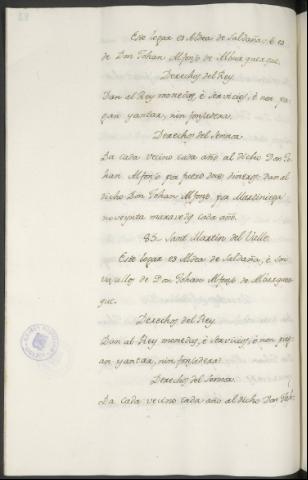 Este logar es Aldea de Saldaña, é es
de Don Johan Alfonso de Alburquerque.
Derechos del Rey.
Dan al Rey monedas, é servicios, é non pa-
gan yantar, nin fonsadera.
Derechos del Sennor.
Da cada vecino cada año al dicho Don Jo-
han Alfonso por fuero doce dineros: dan al
dicho Don Johan Alfonso por Martiniega
noventa maravedis cada año.
85. Sant Martin del Valle.
Este logar es Aldea de Saldaña, é son
vasallos de Don Johan Alfonso de Alburquer-
que.
Derechos del Rey.
Dan al Rey monedas, é servicios, é non pag-
an yantar, nin fonsadera.
Derechos del Sennor.
Da cada vecino cada año al dicho Don Joh-